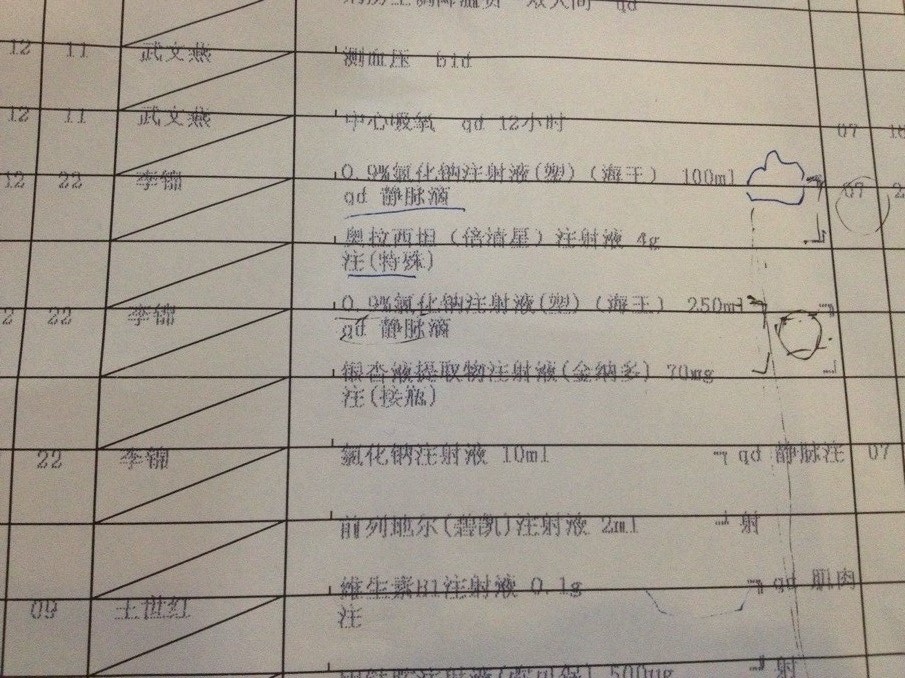 12 11 武文燕 测血压 bid
12 11 武文燕 中心吸氧 qd 12小时 07
12 22 李锦 0.9%氯化钠注射液(塑)(海王) 100ml 07 2
qd 静脉滴
奥拉西坦(倍清星)注射液 4g
注(特殊)
2 22 李锦 0.9%氯化钠注射液(塑)(海王) 250ml
qd 静脉滴
银杏液提取物注射液(金纳多) 70mg
注(接瓶)
22 李锦 氯化钠注射液 10ml qd 静脉注 07
前列地尔(碧凯)注射液 2ml 射
09 王世红 维生素B1注射液 0.1g qd 肌肉
注
500ug 射